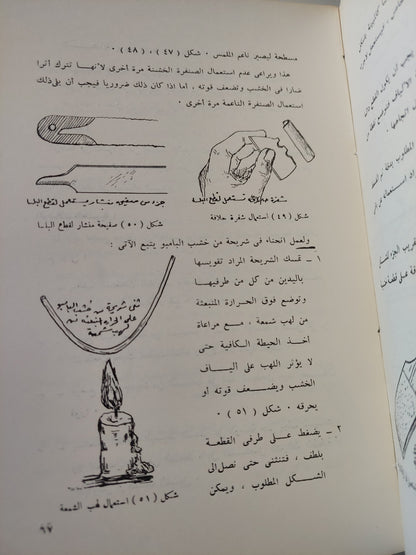 مسطحة ليصير ناعم الملمس . شكل (٤٧) ، (٤٨) .
هذا ويراعى عدم استعمال الصنفرة الخشنة مرة أخرى لأنها تترك أثرا
ضارا فى الخشب وتضعف قوته . اما اذا كان ذلك ضروريا فيجب أن يلى ذلك
استعمال الصنفرة الناعمة مرة أخرى .
شفرة حلاقة تستعمل لقطع البلسا
شكل (٤٩) استعمال شفرة حلاقة
جزء من صفيحة منشار تستعمل لقطع البلسا
شكل (٥٠) صفيحة منشار لقطع البلسا
ولعمل انحناء فى شريحة من خشب البامبو يتبع الآتى :
١ - تمسك الشريحة المراد تقويسها
باليدين من كل من طرفيها
وتوضع فوق الحرارة المنبعثة
من لهب شمعة ، مع مراعاة
أخذ الحيطة الكافية حتى
لا يؤثر اللهب على ألياف
الخشب ويضعف قوته أو
يحرقه . شكل (٥١) .
ثنى شريحة من خشب البامبو
على الحرارة المنبعثة من
لهب شمعة
٢ - يضغط على طرفى القطعة
بلطف ، فتنثنى حتى نصل الى
الشكل المطلوب ، ويمكن
شكل (٥١) استعمال لهب الشمعة
٦٧